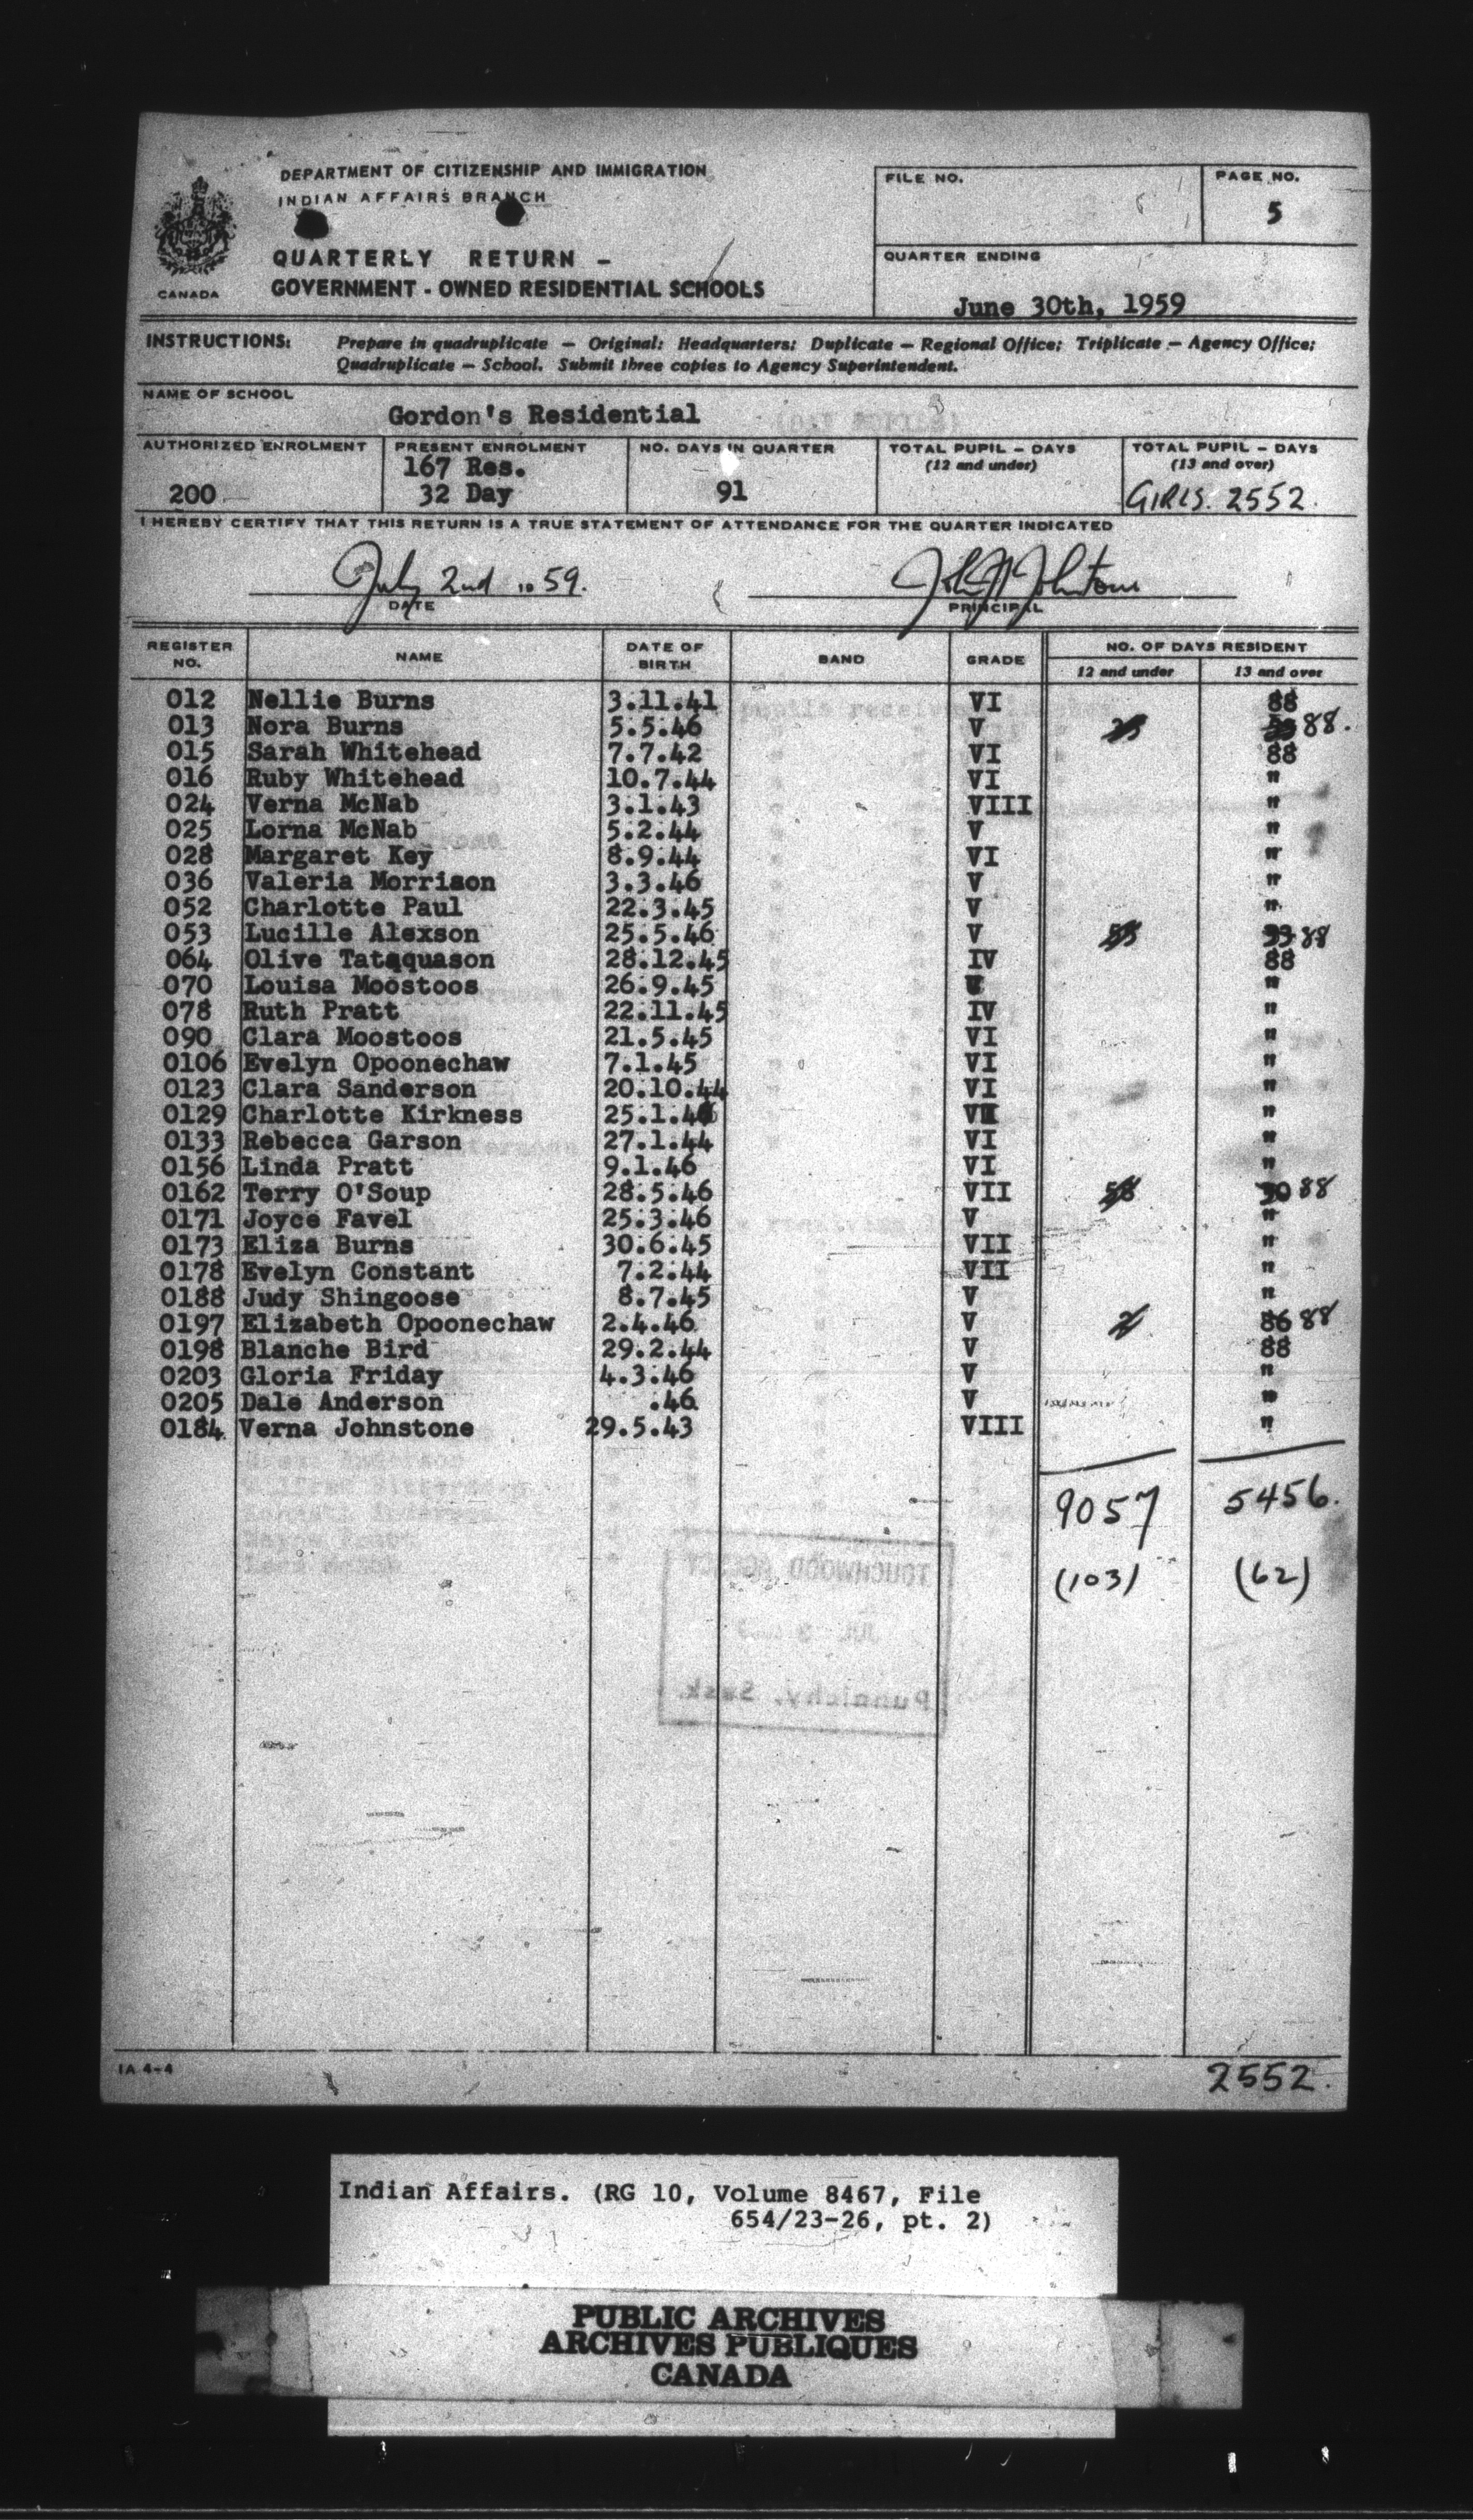 DEPARTMENT OF CITIZENSHIP AND IMMIGRATION
INDIAN AFFAIRS BRANCH
CANADA
QUARTERLY RETURN -
GOVERNMENT - OWNED RESIDENTIAL SCHOOLS
FILE NO.
PAGE NO.
5
QUARTER ENDING
June 30th, 1959
INSTRUCTIONS: Prepare in quadruplicate — Original: Headquarters; Duplicate — Regional Office; Triplicate — Agency Office;
Quadruplicate — School. Submit three copies to Agency Superintendent.
NAME OF SCHOOL
Gordon's Residential
AUTHORIZED ENROLMENT
200
PRESENT ENROLMENT
167 Res.
32 Day
NO. DAYS IN QUARTER
91
TOTAL PUPIL - DAYS
(12 and under)
TOTAL PUPIL - DAYS
(13 and over)
GIRLS. 2552.
I HEREBY CERTIFY THAT THIS RETURN IS A TRUE STATEMENT OF ATTENDANCE FOR THE QUARTER INDICATED
July 2nd 19 59.
DATE
John Johnstone
PRINCIPAL
REGISTER NO. NAME DATE OF BIRTH BAND GRADE NO. OF DAYS RESIDENT
12 and under 13 and over
012 Nellie Burns 3.11.41 VI 88
013 Nora Burns 5.5.46 V 88.
015 Sarah Whitehead 7.7.42 VI 88
016 Ruby Whitehead 10.7.44 VI "
024 Verna McNab 3.1.43 VIII "
025 Lorna McNab 5.2.44 V "
028 Margaret Key 8.9.44 VI "
036 Valeria Morrison 3.3.46 V "
052 Charlotte Paul 22.3.45 V "
053 Lucille Alexson 25.5.46 V 88
064 Olive Tataquason 28.12.45 IV 88
070 Louisa Moostoos 26.9.45 "
078 Ruth Pratt 22.11.45 IV "
090 Clara Moostoos 21.5.45 VI "
0106 Evelyn Opoonechaw 7.1.45 VI "
0123 Clara Sanderson 20.10.44 VI "
0129 Charlotte Kirkness "
0133 Rebecca Garson 27.1.44 VI "
0156 Linda Pratt 9.1.46 VI "
0162 Terry O'Soup 28.5.46 VII 88
0171 Joyce Favel 25.3.46 V "
0173 Eliza Burns 30.6.45 VII "
0178 Evelyn Constant 7.2.44 VII "
0188 Judy Shingoose 8.7.45 V "
0197 Elizabeth Opoonechaw 2.4.46 V 2 86 88
0198 Blanche Bird 29.2.44 V 88
0203 Gloria Friday 4.3.46 V "
0205 Dale Anderson .46 V "
0184 Verna Johnstone 29.5.43 VIII "
9057 5456.
(103) (62)
TOUCHWOOD AGENCY
Punnichy, Sask.
IA 4-4
2552.
Indian Affairs. (RG 10, Volume 8467, File
654/23-26, pt. 2)
PUBLIC ARCHIVES
ARCHIVES PUBLIQUES
CANADA